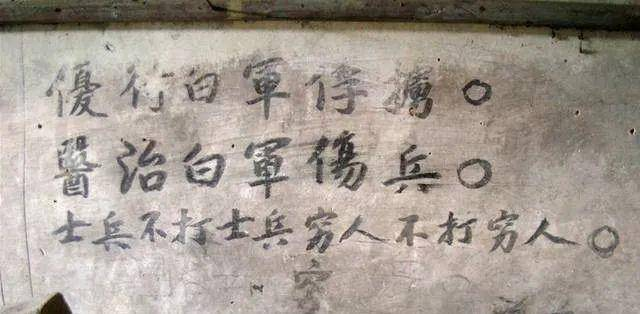 優待白軍俘擄。
醫治白軍傷兵。
士兵不打士兵穷人不打穷人。